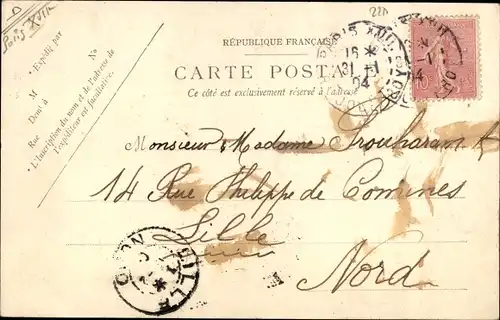 Paris XVIII
RÉPUBLIQUE FRANÇAISE
CARTE POSTALE
Ce côté est exclusivement réservé à l'adresse
Expédié par
N°
M
Dom t à
Rue
L'Inscription du nom et de l'adresse de
l'expéditeur est facultative.
PARIS XVIII
31 -1
04
Monsieur & Madame
14 Rue Philippe de Comines
Lille
Nord
LILLE
NORD